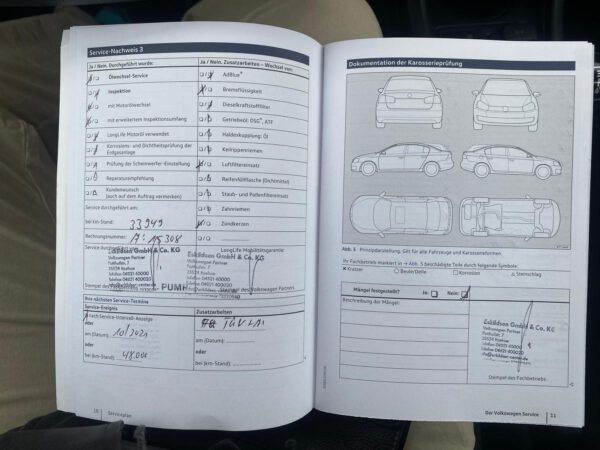 Service-Nachweis 3
Ja / Nein. Durchgeführt wurde:
Ölwechsel-Service
Inspektion
mit Motorölwechsel
mit erweitertem Inspektionsumfang
LongLife Motoröl verwendet
Korrosions- und Dichtheitsprüfung der
Erdgasanlage
Prüfung der Scheinwerfer-Einstellung
Reparaturempfehlung
Kundenwunsch
(auch auf dem Auftrag vermerken)
Service durchgeführt am:
bei km-Stand: 33949
Rechnungsnummer:
Service durchgeführt
Eskildsen GmbH & Co. KG
Volkswagen Partner
Ja / Nein. Zusatzarbeiten – Wechsel von:
AdBlue®
Bremsflüssigkeit
Dieselkraftstofffilter
Getriebeöl: DSG®, ATF
Haldexkupplung: Öl
Keilrippenriemen
Luftfiltereinsatz
Reifenfüllflasche (Dichtmittel)
Staub- und Pollenfiltereinsatz
Zahnriemen
Zündkerzen
LongLife Mobilitätsgarantie
Eskildsen GmbH & Co. KG
Volkswagen Partner
Stempel des Volkswagen Partners
Ihre nächsten Service-Termine
Service-Ereignis
nach Service-Intervall-Anzeige
oder
am (Datum):
oder
bei (km-Stand):
Zusatzarbeiten
am (Datum):
oder
bei (km-Stand):
10
Serviceplan
Dokumentation der Karosserieprüfung
Abb. 5 Prinzipdarstellung. Gilt für alle Fahrzeuge und Karosserieformen.
Ihr Fachbetrieb markiert in → Abb. 5 beschädigte Teile durch folgende Symbole:
X Kratzer O Beule/Delle □ Korrosion △ Steinschlag
Mängel festgestellt? Ja: Nein:
Beschreibung der Mängel:
Eskildsen GmbH & Co. KG
Volkswagen Partner
Stempel des Fachbetriebs
Der Volkswagen Service
11